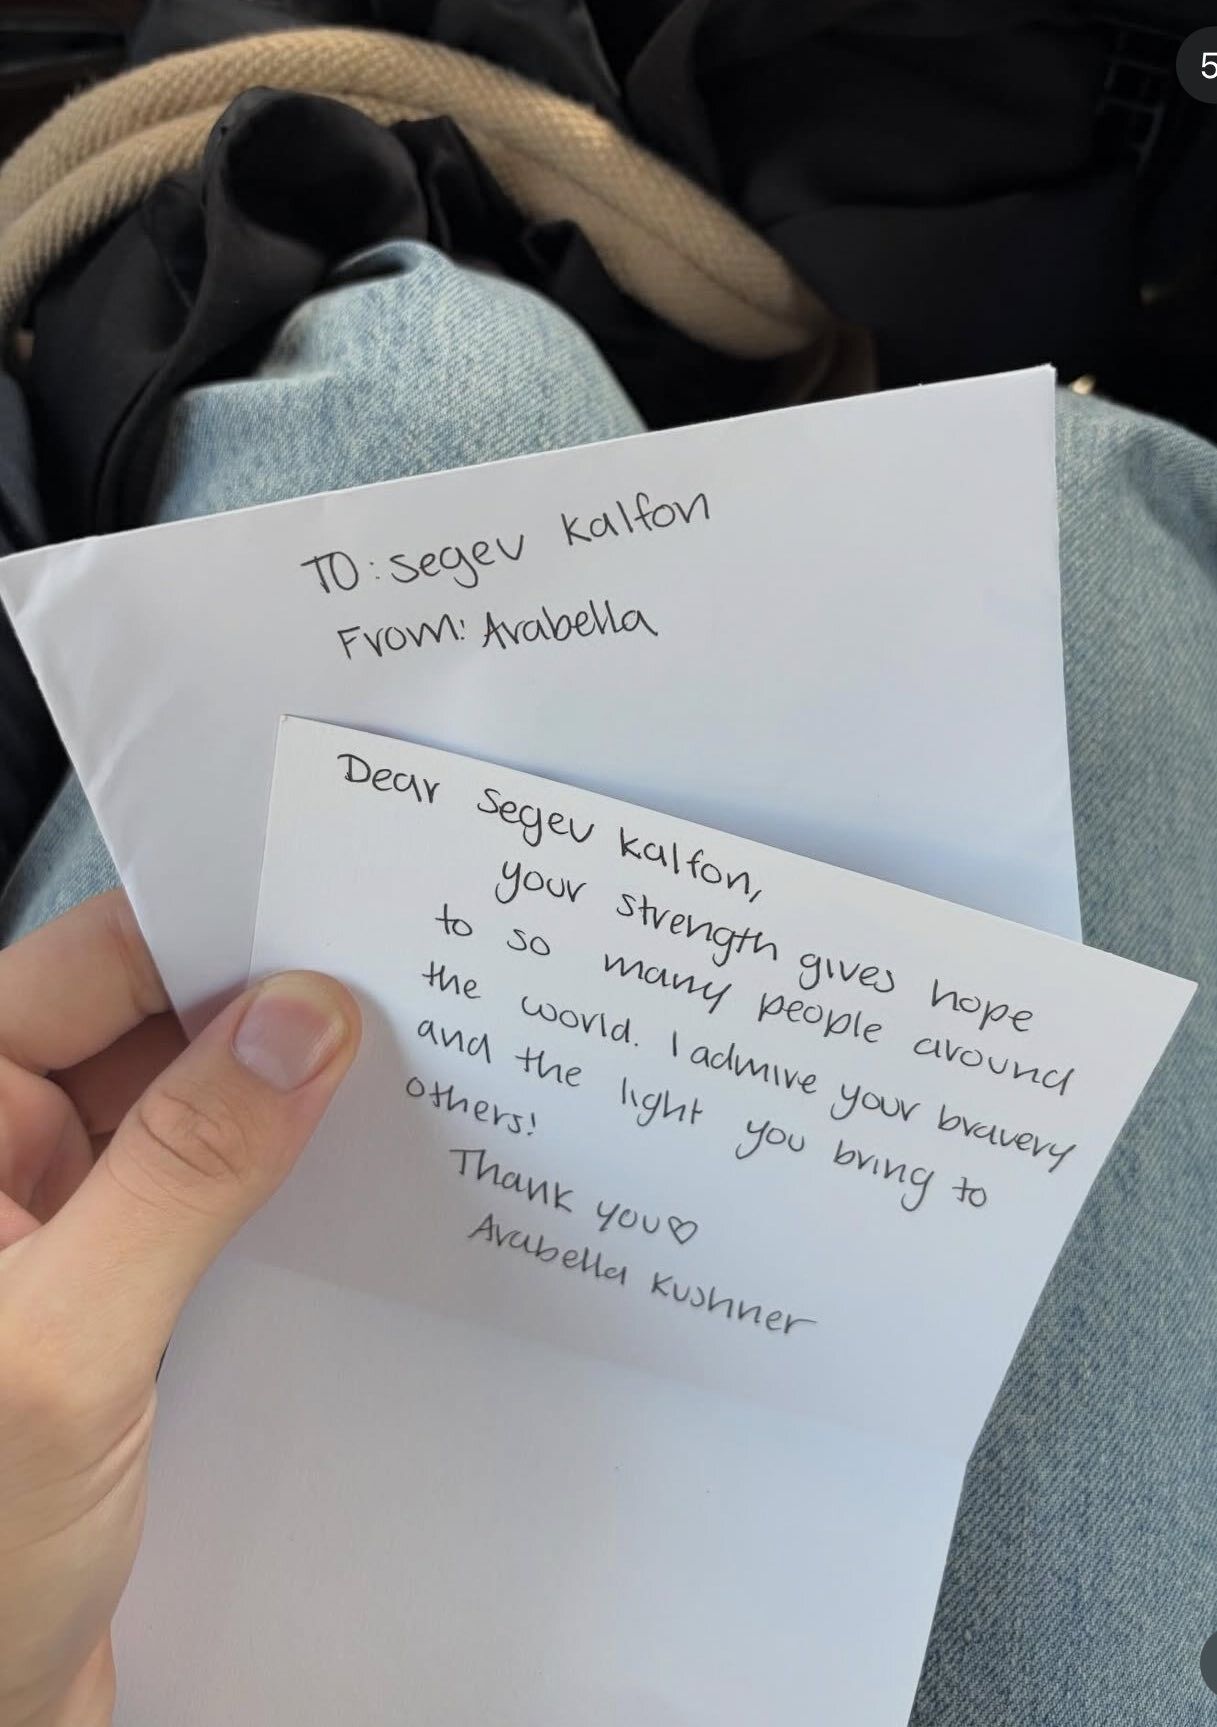 TO: Segev Kalfon
From: Arabella
Dear Segev Kalfon,
your strength gives hope
to so many people around
the world. I admire your bravery
and the light you bring to
others!
Thank you♡
Arabella Kushner
5